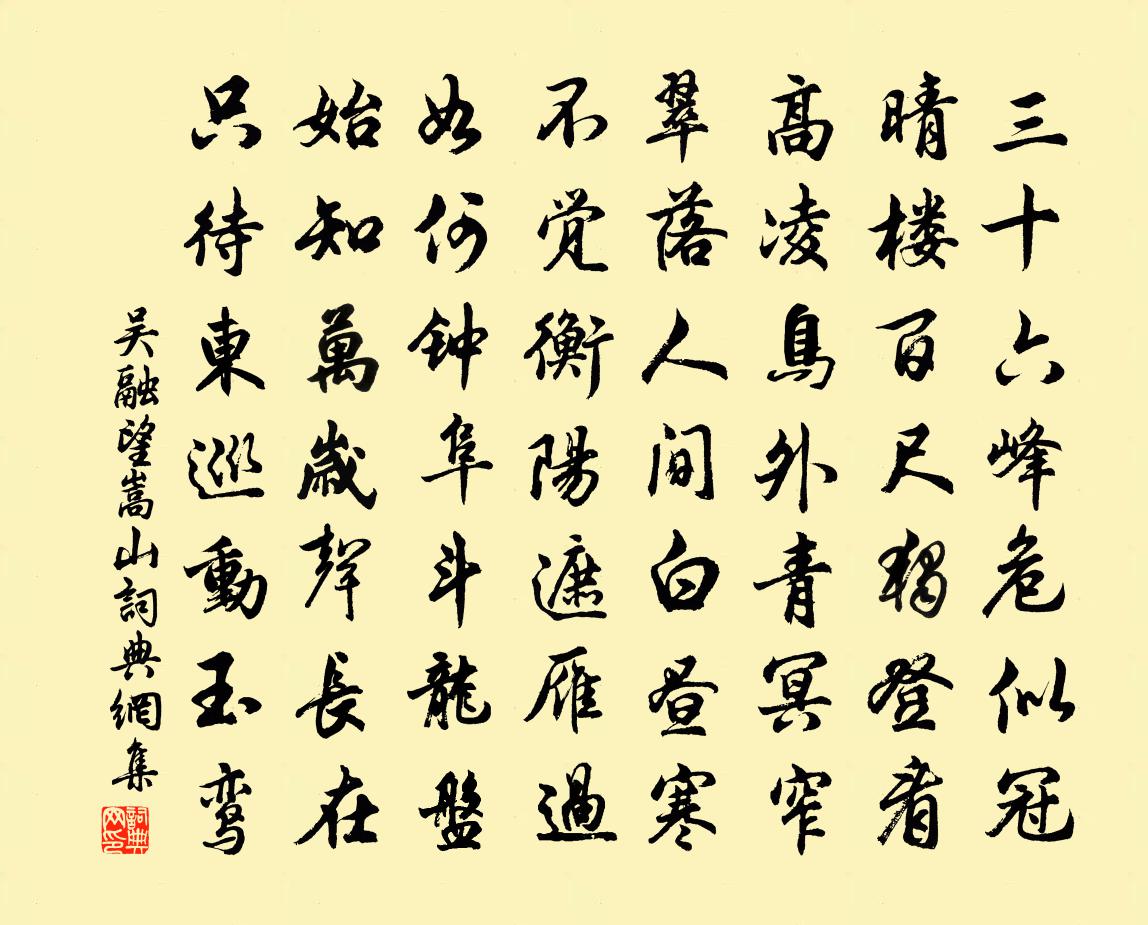 三十六峰危似冠
晴楼百尺獨登看
高凌鳥外青冥窄
翠落人间白昼寒
不觉衡陽遮雁過
如何钟阜斗龍盤
始知萬歲聲長在
只待東巡動玉鸾
吴融望嵩山詞典網集
詞典网印